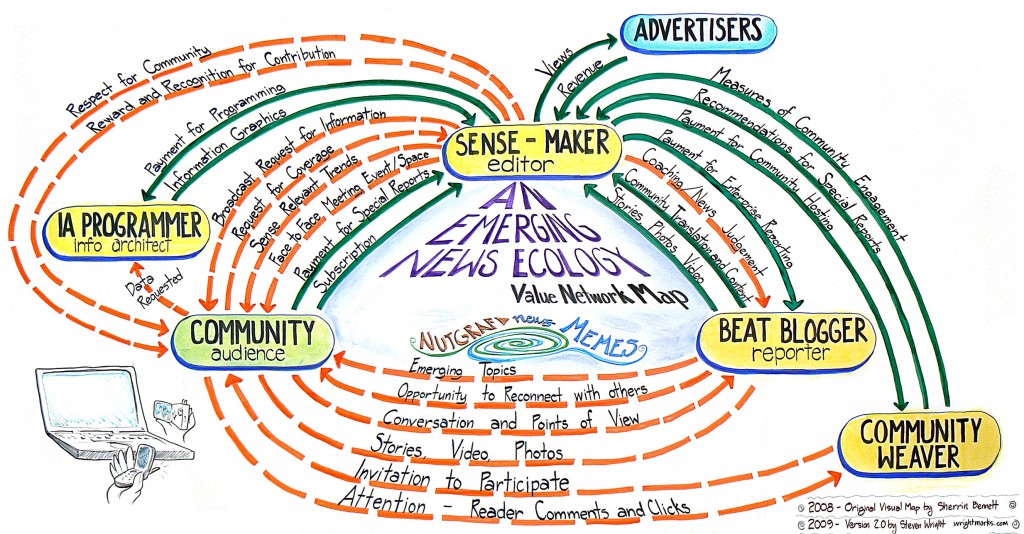 ADVERTISERS
Views
Revenue
Respect for Community
Reward and Recognition for Contribution
Payment for Programming
Information Graphics
Broadcast Request for Information
Request for Coverage
Sense Relevant Trends
Face to Face Meeting Event/Space
Payment for Special Reports
Subscription
SENSE-MAKER
editor
Measures of Community Engagement
Recommendations for Special Reports
Payment for Community Hosting
Payment for Enterprise Reporting
Coaching/News Judgement
Community Translation and Content
Stories Photos Video
IA PROGRAMMER
info architect
Data
Requested
AN
EMERGING
NEWS ECOLOGY
Value Network Map
NUTGRAF news MEMES
COMMUNITY
audience
BEAT BLOGGER
reporter
Emerging Topics
Opportunity to Reconnect with others
Conversation and Points of View
Stories, Video, Photos
Invitation to Participate
Attention - Reader Comments and Clicks
COMMUNITY
WEAVER
© 2008 - Original Visual Map by Sherrin Bennett ©
© 2009 - Version 2.0 by Steven Wright wrightmarks.com ©